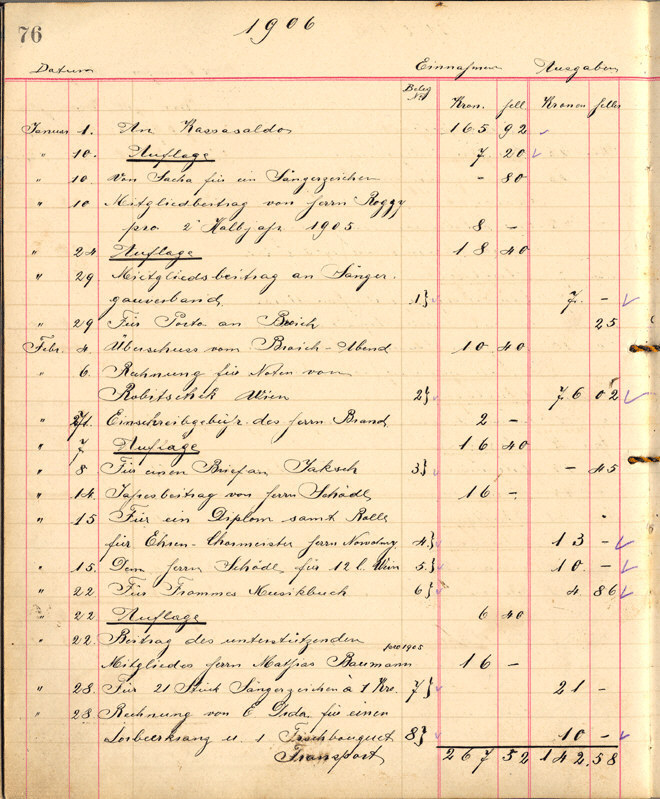 76
1906
Datum Einnahmen Ausgaben
Beleg Nr.
Kron. hell Kronen heller
Januar 1. An Kassasaldo 165 92
" 10. Auflage 7 20
" 10. Von Sacha für ein Sängerzeichen - 80
" 10 Mitgliedbeitrag von Herrn Roggy
pro 2 Halbjahr 1905 8 -
" 24 Auflage 18 40
" 29 Mietgliedsbeitrag an Sänger-
gauverband 1} 7 -
" 29 Für Porto an 25
Febr. 4. Überschuss vom Broich-Abend 10 40
" 6. Rechnung für Noten von
Robitschek Wien 2} 76 02
" 7. Einschreibgebühr des Herrn Brand 2 -
" 7 Auflage 16 40
" 8 Für einen Brief an Jaksch 3} - 45
" 14. Jahresbeitrag von Herrn Schödl 16 -
" 15 Für ein Diplom samt Rolle
für Ehren-Chormeister Herrn 4} 13 -
" 15. Dem Herrn Schödl für 12 l. Wein 5} 10 -
" 22 Für Frommes Musikbuch 6} 4 86
" 22 Auflage 6 40
" 22. Beitrag des unterstützenden
pro 1905
Mitgliedes Herrn Mathias Baumann 16 -
" 28. Für 21 Stück Sängerzeichen à 1 Kro. 7} 21 -
" 28 Rechnung von E. für einen
Lorbeerkranz u. 1 Tischbouquet 8} 10 -
Transport 267 52 142.58